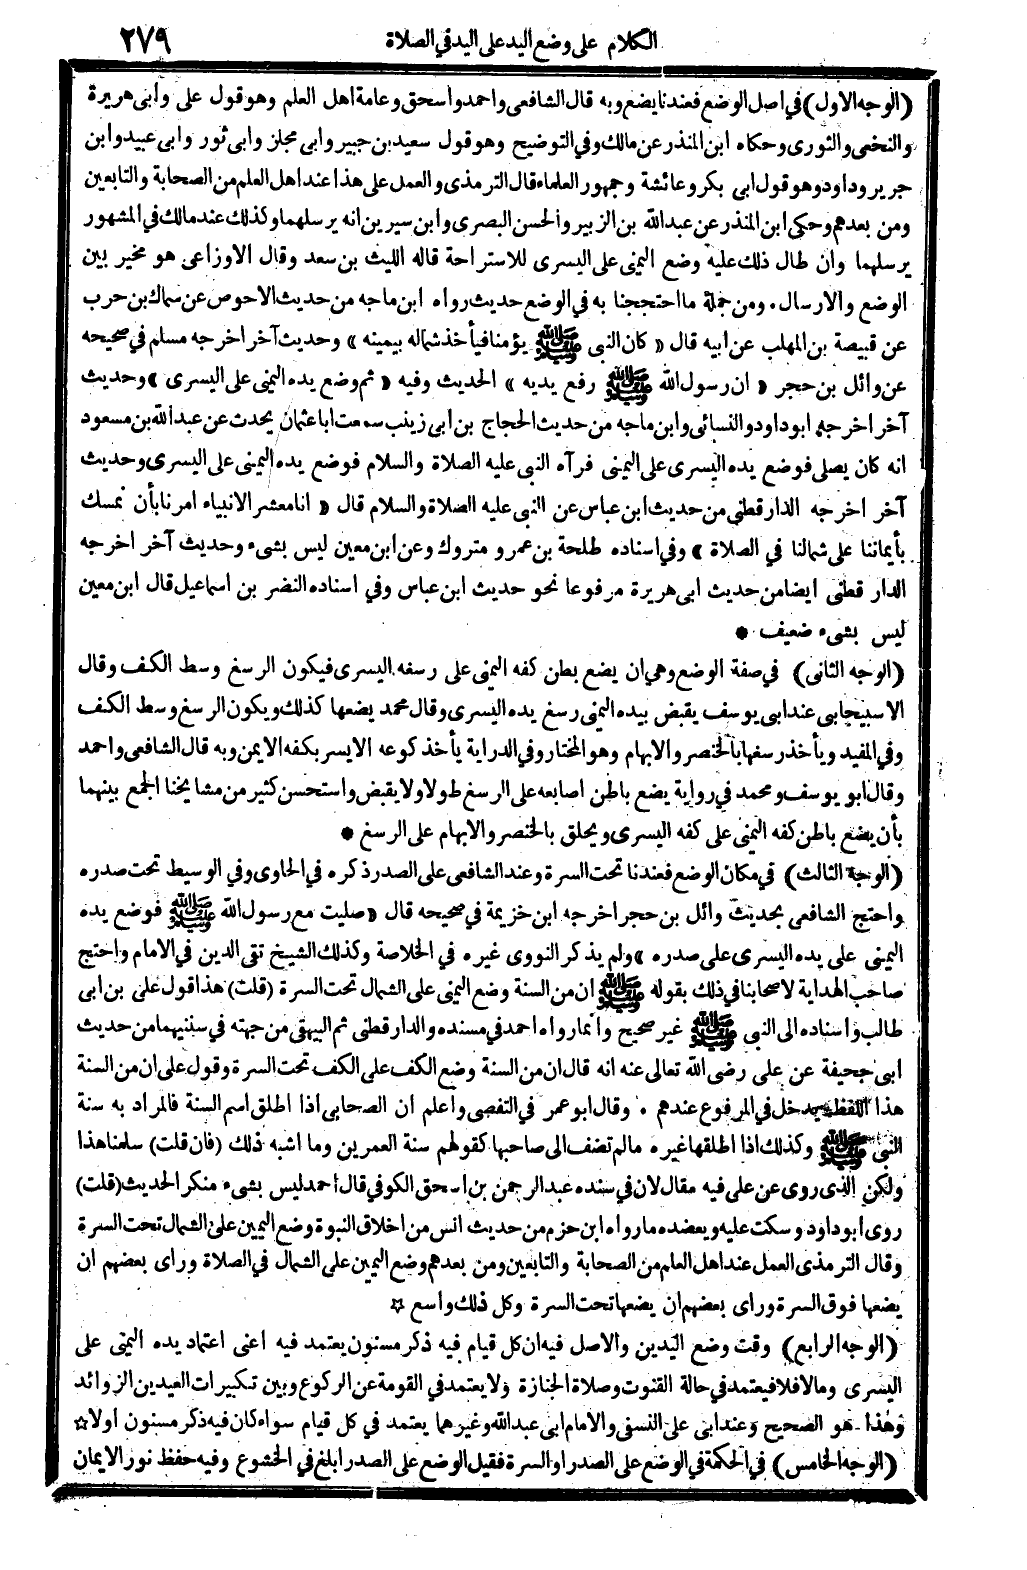 الكلام على وضع اليد على اليد في الصلاة ٢٧٩
(الوجه الاول) في اصل الوضع فعندنا يضع وبه قال الشافعى واحمد واسحق وعامة اهل العلم وهو قول على وأبى هريرة
والنخعى والثورى وحكاه ابن المنذر عن مالك وفي التوضيح وهو قول سعيد بن جبير وأبى مجلز وأبى ثور وأبى عبيد وابن
جرير وداود وهو قول ابى بكر وعائشة وجمهور العلماء قال الترمذى والعمل على هذا عند اهل العلم من الصحابة والتابعين
ومن بعدهم وحكى ابن المنذر عن عبد الله بن الزبير والحسن البصرى وابن سيرين انه يرسلهما وكذلك عند مالك في المشهور
يرسلهما وان طال ذلك عليه وضع اليمنى على اليسرى للاستراحة قاله الليث بن سعد وقال الاوزاعى هو مخير بين
الوضع والارسال. ومن جملة ما احتججنا به في الوضع حديث رواه ابن ماجه من حديث الاحوص عن سماك بن حرب
عن قبيصة بن المهلب عن ابيه قال « كان النبى ﷺ يؤمنا فيأخذ شماله بيمينه » وحديث آخر اخرجه مسلم في صحيحه
عن وائل بن حجر « ان رسول الله ﷺ رفع يديه » الحديث وفيه « ثم وضع يده اليمنى على اليسرى » وحديث
آخر اخرجه ابو داود والنسائى وابن ماجه من حديث الحجاج بن ابى زينب سمعت ابا عثمان يحدث عن عبد الله بن مسعود
انه كان يصلى فوضع يده اليسرى على اليمنى فرآه النبى عليه الصلاة والسلام فوضع يده اليمنى على اليسرى وحديث
آخر اخرجه الدارقطنى من حديث ابن عباس عن النبى عليه الصلاة والسلام قال « انا معشر الانبياء امرنا بأن نمسك
بأيماننا على شمالنا في الصلاة » وفي اسناده طلحة بن عمرو متروك وعن ابن معين ليس بشىء وحديث آخر اخرجه
الدارقطنى ايضا من حديث ابى هريرة مرفوعا نحو حديث ابن عباس وفي اسناده النضر بن اسماعيل قال ابن معين
ليس بشىء ضعيف *
(الوجه الثانى) في صفة الوضع وهي ان يضع بطن كفه اليمنى على رسغه اليسرى فيكون الرسغ وسط الكف وقال
الاسبيجابى عند ابى يوسف يقبض بيده اليمنى رسغ يده اليسرى وقال محمد يضعها كذلك ويكون الرسغ وسط الكف
وفي المفيد ويأخذ رسغها بالخنصر والابهام وهو المختار وفي الدراية يأخذ كوعه الايسر بكفه الايمن وبه قال الشافعى واحمد
وقال ابو يوسف ومحمد في رواية يضع باطن اصابعه على الرسغ طولا ولا يقبض واستحسن كثير من مشايخنا الجمع بينهما
بأن يضع باطن كفه اليمنى على كفه اليسرى ويحلق بالخنصر والابهام على الرسغ *
(الوجه الثالث) في مكان الوضع فعندنا تحت السرة وعند الشافعى على الصدر ذكره في الحاوى وفي الوسيط تحت صدره
واحتج الشافعى بحديث وائل بن حجر اخرجه ابن خزيمة في صحيحه قال « صليت مع رسول الله ﷺ فوضع يده
اليمنى على يده اليسرى على صدره » ولم يذكر النووى غيره في الخلاصة وكذلك الشيخ تقى الدين في الامام واحتج
صاحب الهداية لاصحابنا في ذلك بقوله ﷺ ان من السنة وضع اليمنى على الشمال تحت السرة (قلت) هذا قول على بن ابى
طالب واسناده الى النبى ﷺ غير صحيح وانما رواه احمد في مسنده والدارقطنى ثم البيهقى من جهته في سننيهما من حديث
ابى جحيفة عن على رضى الله تعالى عنه انه قال ان من السنة وضع الكف على الكف تحت السرة وقول على ان من السنة
هذا اللفظ يدخل في المرفوع عندهم . وقال ابو عمر في التفصى واعلم ان الصحابى اذا اطلق اسم السنة فالمراد به سنة
النبى ﷺ وكذلك اذا اطلقها غيره مالم تضف الى صاحبها كقولهم سنة العمرين وما اشبه ذلك (فان قلت) سلمنا هذا
ولكن الذى روى عن على فيه مقال لان في سنده عبد الرحمن بن اسحق الكوفي قال احمد ليس بشىء منكر الحديث (قلت)
روى ابو داود وسكت عليه ويعضده ما رواه ابن حزم من حديث انس من اخلاق النبوة وضع اليمين على الشمال تحت السرة
وقال الترمذى العمل عند اهل العلم من الصحابة والتابعين ومن بعدهم وضع اليمين على الشمال في الصلاة وراى بعضهم ان
يضعها فوق السرة وراى بعضهم ان يضعها تحت السرة وكل ذلك واسع ☆
(الوجه الرابع) وقت وضع اليدين والاصل فيه ان كل قيام فيه ذكر مسنون يعتمد فيه اعنى اعتماد يده اليمنى على
اليسرى ومالا فلا فيعتمد في حالة القنوت وصلاة الجنازة ولا يعتمد في القومة عن الركوع وبين تكبيرات العيدين الزوائد
وهذا هو الصحيح وعند ابى على النسفى والامام ابى عبد الله وغيرهما يعتمد في كل قيام سواء كان فيه ذكر مسنون اولا ☆
(الوجه الخامس) في الحكمة في الوضع على الصدر او السرة فقيل الوضع على الصدر ابلغ في الخشوع وفيه حفظ نور الايمان